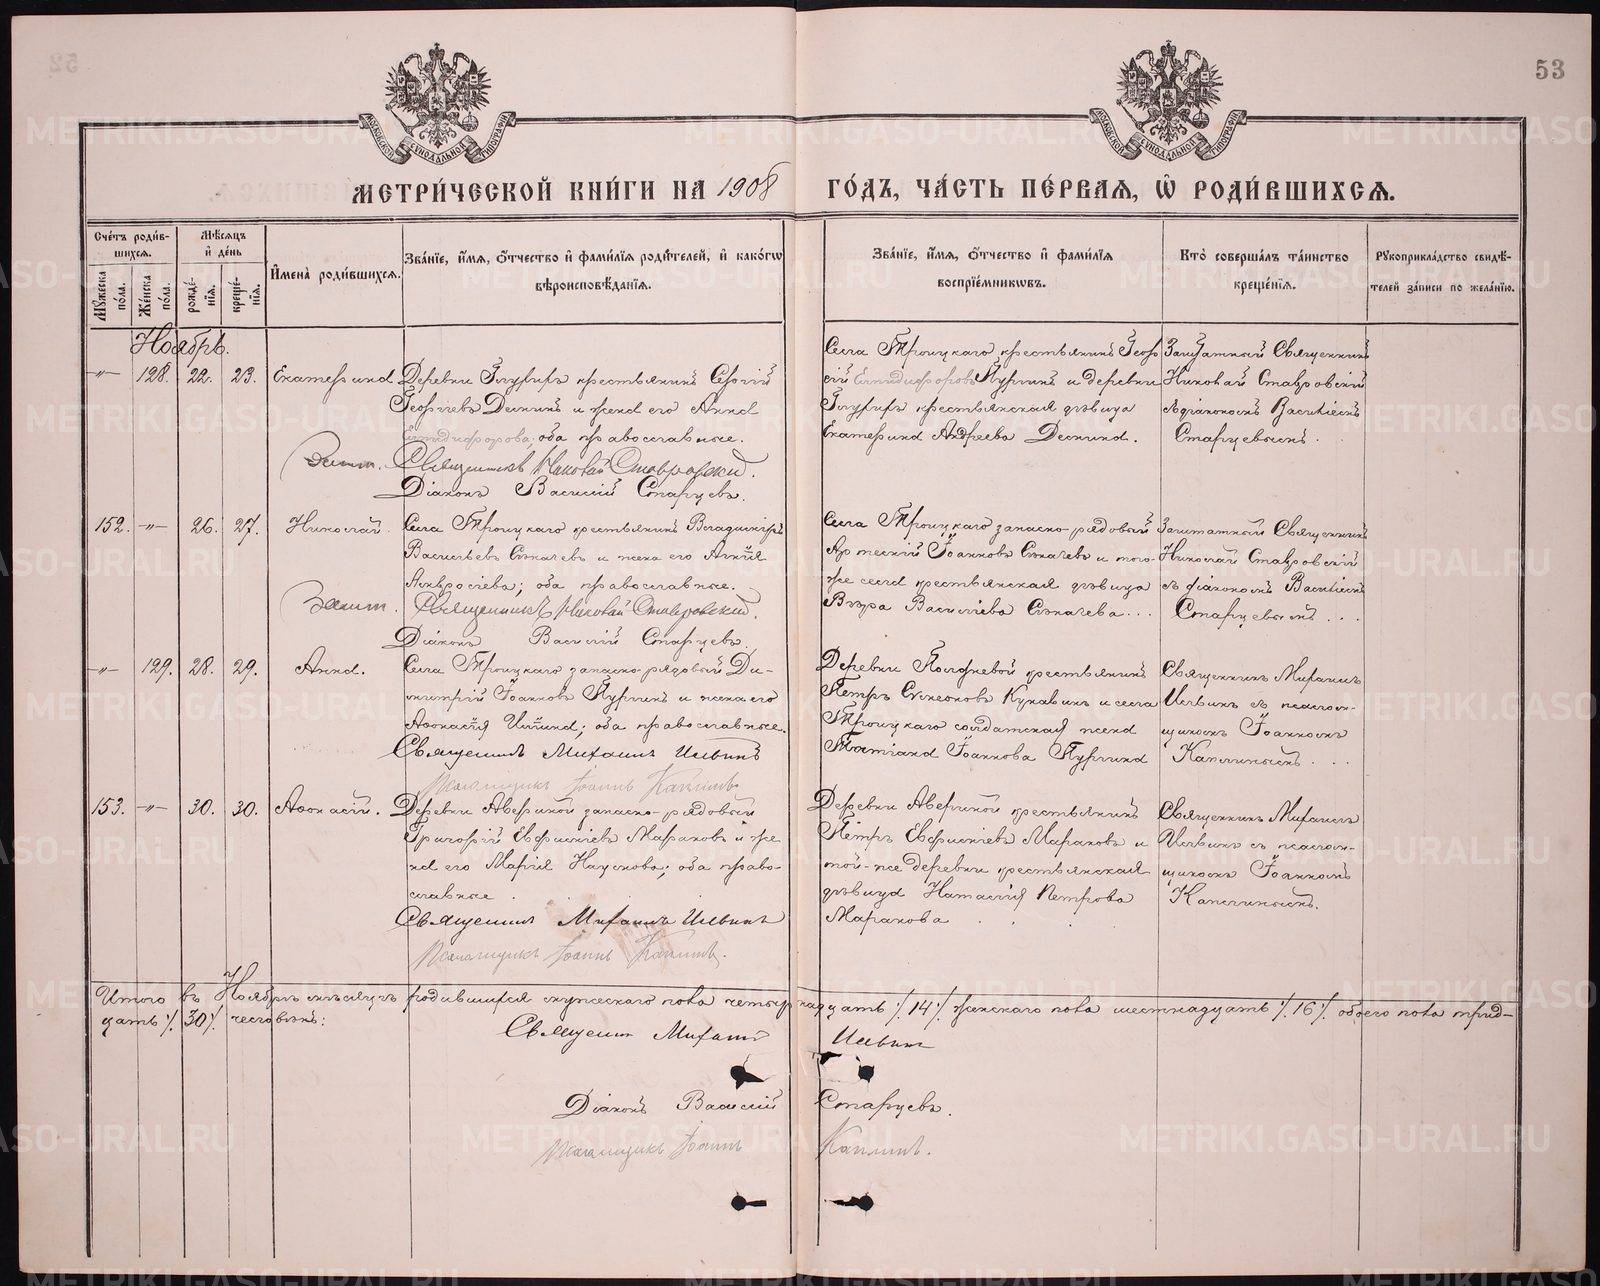 53
МОСКОВСКОЙ СѴНОДАЛЬНОЙ ТИПОГРАФІИ
МОСКОВСКОЙ СѴНОДАЛЬНОЙ ТИПОГРАФІИ
МЕТРИ́ЧЕСКОЙ КНИ́ГИ НА 1908 ГО́ДЪ, ЧА́СТЬ ПЕ́РВАЯ, Ѡ҆ РОДИ́ВШИХСЯ.
Сче́тъ роди́в-
шихся.
Мꙋжеска по́ла.
Же́нска по́ла.
Мѣ́сяцъ
и҆ де́нь
рожде́-
нїя.
креще́-
нїя.
И҆мена̀ роди́вшихся.
Зва́нїе, и҆́мя, ѻ҆́тчество и҆ фами́лїя роди́телей, и҆ како́гѡ
вѣроисповѣ́данїя.
Зва́нїе, и҆́мя, ѻ҆́тчество и҆ фами́лїя
воспрїе́мникѡвъ.
Кто̀ соверша́лъ та́инство
креще́нїя.
Рꙋкоприкла́дство свидѣ́-
телей за́писи по жела́нїю.
Ноябрь.
-"- 128. 22. 23. Екатерина
Деревни крестьянинъ Сергій
Георгіевъ Деминъ и жена его Анна
Елпидифорова; оба православные.
Священникъ Николай Ставровский.
Діаконъ Василій Старцевъ.
Села Троицкаго крестьянинъ Геор
гій Елпидифоровъ Пургинъ и деревни
крестьянская дѣвица
Екатерина Андреева Демина.
Заштатный Священникъ
Николай Ставровскій
съ діакономъ Василіемъ
Старцевымъ.
152. -"- 26. 27. Николай.
Села Троицкаго крестьянинъ Владиміръ
Васильевъ Сѣкачевъ и жена его Агнія
Амвросіева; оба православные.
Священникъ Николай Ставровский.
Діаконъ Василій Старцевъ.
Села Троицкаго запасно-рядовый
Артемій Іоанновъ Сѣкачевъ и того-
же села крестьянская дѣвица
Вѣра Василіева Сѣкачева...
Заштатный Священникъ
Николай Ставровскій
съ діакономъ Василіемъ
Старцевымъ...
-"- 129. 28. 29. Анна.
Села Троицкаго запасно-рядовый Ди-
митрій Іоанновъ Пургинъ и жена его
Аѳанасія Ильина; оба православные.
Священникъ Михаилъ Ильинъ
Псаломщикъ Іоаннъ Каплинъ
Деревни Полдневой крестьянинъ
Петръ Симеоновъ Кукавинъ и села
Троицкаго солдатская жена
Татіана Іоаннова Пургина
Священникъ Михаилъ
Ильинъ съ псалом-
щикомъ Іоанномъ
Каплинымъ...
153. -"- 30. 30. Аѳанасій.
Деревни Авериной запасно-рядовый
Григорій Евѳиміевъ Мараковъ и же
на его Марія Наумова; оба право-
славные.
Священникъ Михаилъ Ильинъ
Псаломщикъ Іоаннъ Каплинъ.
Деревни Авериной крестьянинъ
Петръ Евѳиміевъ Мараковъ и
той-же деревни крестьянская
дѣвица Наталія Петрова
Маракова
Священникъ Михаилъ
Ильинъ съ псалом-
щикомъ Іоанномъ
Каплинымъ.
Итого въ Ноябрѣ мѣсяцѣ родившихся мужескаго пола четырнадцать ·/.14·/. женскаго пола шестнадцать ·/.16·/. обоего пола трид-
цать ·/.30·/. человѣкъ:
Священникъ Михаилъ Ильинъ
Діаконъ Василій Старцевъ.
Псаломщикъ Іоаннъ Каплинъ.
METRIKI.GASO-URAL.RU